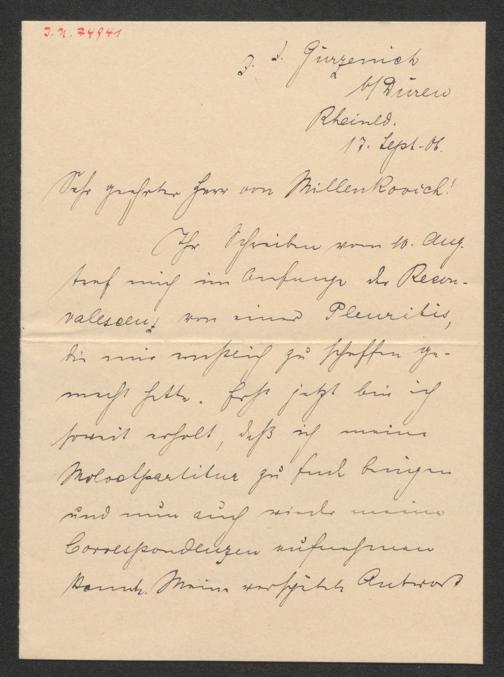 J.N. 74941
z. Z. Gürzenich
b/Düren
Rheinld.
17. Sept. 06.
Sehr geehrter Herr von Millenkovich!
Ihr Schreiben vom 10. Aug.
traf mich im Anfange der Recon-
valescenz von einer Pleuritis,
die mir reichlich zu schaffen ge-
macht hatte. Erst jetzt bin ich
soweit erholt, daß ich meine
Molochpartitur zu Ende bringen
und nun auch wieder meine
Correspondenzen aufnehmen
konnte. Meine verspätete Antwort